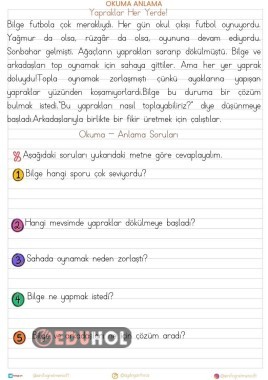 OKUMA ANLAMA
Yapraklar Her Yerde!
Bilge futbola çok meraklıydı. Her gün okul çıkışı futbol oynuyordu.
Yağmur da olsa, rüzgâr da olsa, oyununa devam ediyordu.
Sonbahar gelmişti. Ağaçların yaprakları sararıp dökülmüştü. Bilge ve
arkadaşları top oynamak için sahaya gittiler. Ama her yer yaprak
doluydu!Topla oynamak zorlaşmıştı çünkü ayaklarına yapışan
yapraklar yüzünden koşamıyorlardı.Bilge bu duruma bir çözüm
bulmak istedi."Bu yaprakları nasıl toplayabiliriz?" diye düşünmeye
başladı.Arkadaşlarıyla birlikte bir fikir üretmek için çalıştılar.
Okuma - Anlama Soruları
Aşağıdaki soruları yukarıdaki metne göre cevaplayalım.
1 Bilge hangi sporu çok seviyordu?
2 Hangi mevsimde yapraklar dökülmeye başladı?
3 Sahada oynamak neden zorlaştı?
4 Bilge ne yapmak istedi?
5 Bilge çözüm aradı?
EDUHOL